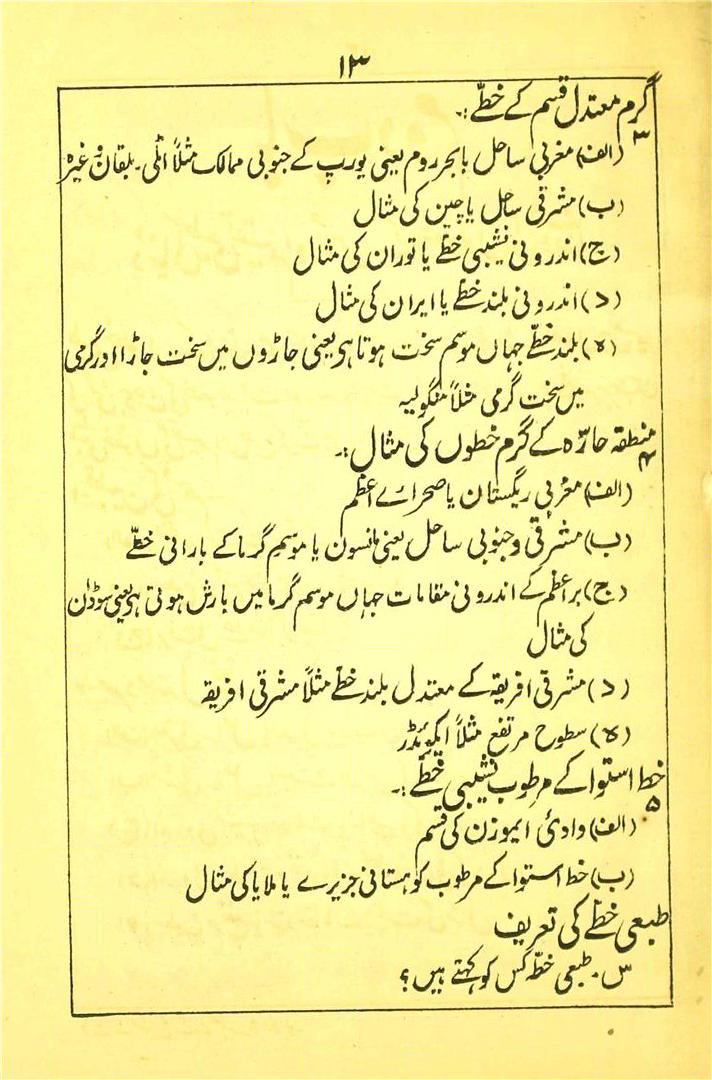 ۱۳
گرم معتدل قسم کے خطّے :۔
۳
(الف) مغربی ساحل یا بحر روم یعنی یورپ کے جنوبی ممالک مثلاً اٹلی۔ بلقان وغیرہ
(ب) مشرقی ساحل یا چین کی مثال
(ج) اندرونی نشیبی خطّے یا توران کی مثال
(د) اندرونی بلند خطّے یا ایران کی مثال
(ہ) بلند خطّے جہاں موسم سخت ہوتا ہی یعنی جاڑوں میں سخت جاڑا اور گرمی
میں سخت گرمی مثلاً منگولیہ
منطقہ حارّہ کے گرم خطوں کی مثال :۔
۴
(الف) مغربی ریگستان یا صحرائے اعظم
(ب) مشرقی و جنوبی ساحل یعنی مانسون یا موسم گرما کے بارانی خطّے
(ج) براعظم کے اندرونی مقامات جہاں موسم گرما میں بارش ہوتی ہی یعنی سوڈان
کی مثال
(د) مشرقی افریقہ کے معتدل بلند خطّے مثلاً مشرقی افریقہ
(ہ) سطوح مرتفع مثلاً ایکوئڈر
خط استوا کے مرطوب نشیبی خطّے :۔
۵
(الف) وادئ ایموزن کی قسم
(ب) خط استوا کے مرطوب کوہستانی جزیرے یا ملایا کی مثال
طبعی خطّے کی تعریف
س۔ طبعی خطّہ کس کو کہتے ہیں؟